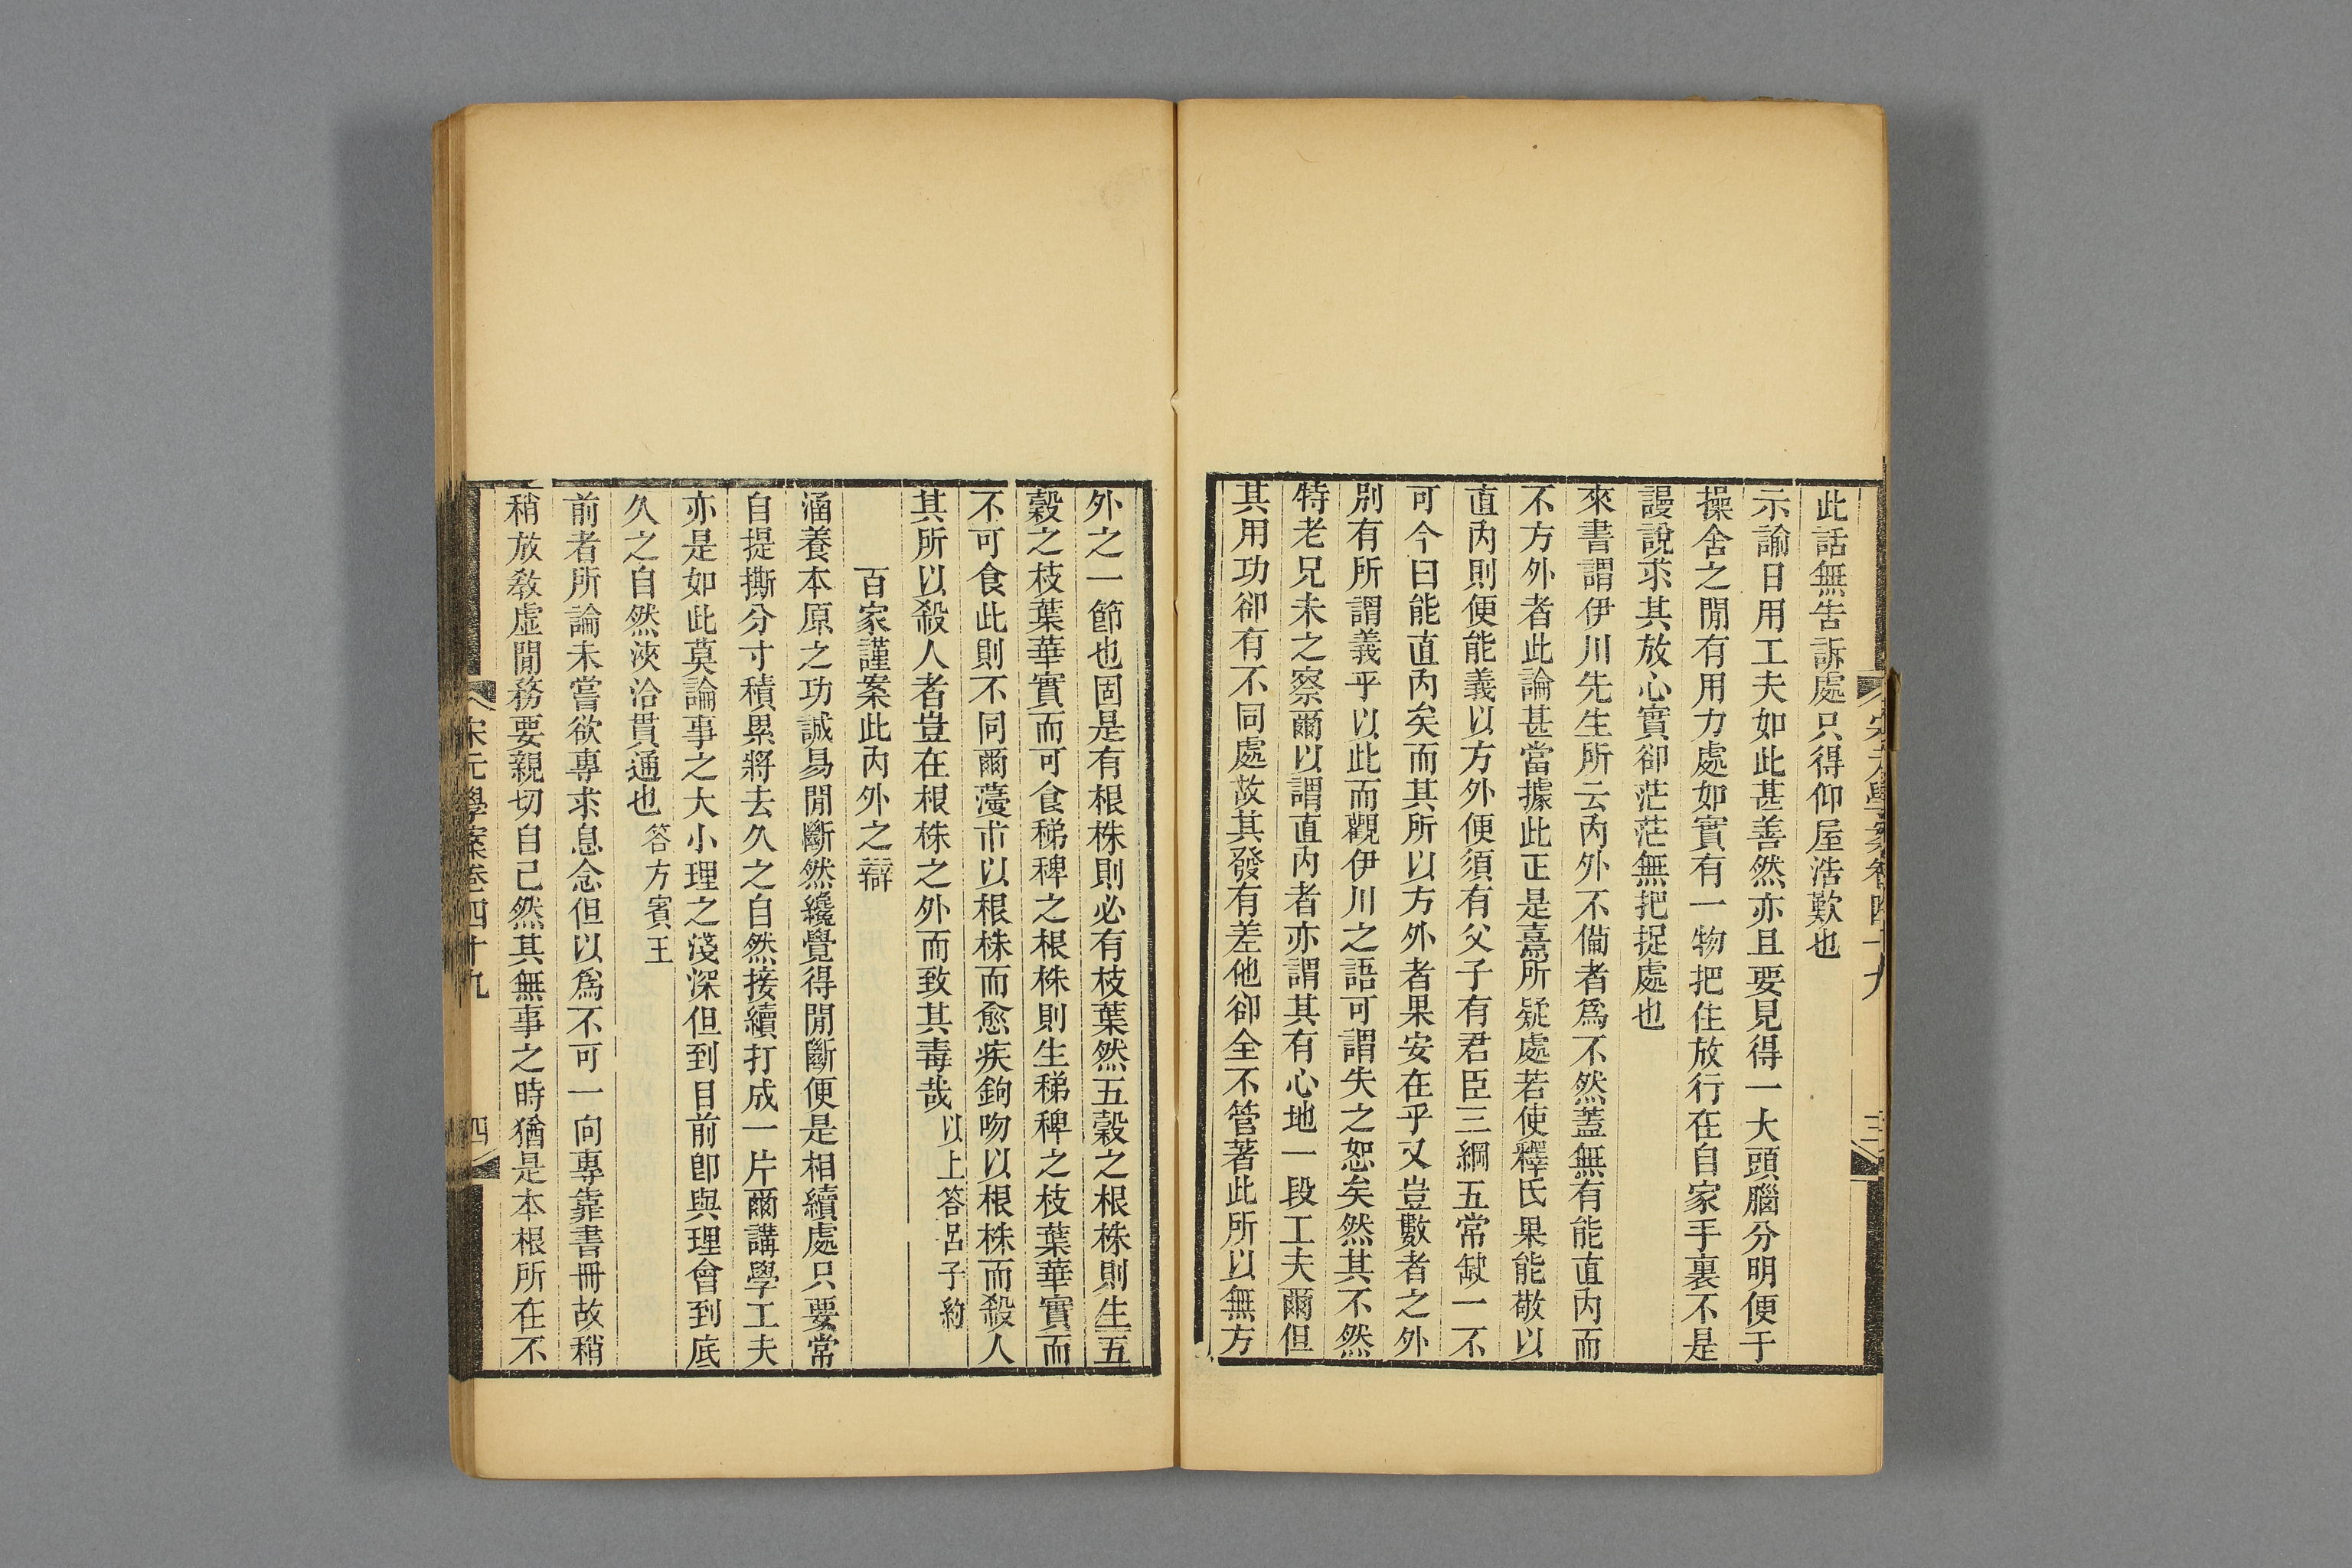 宋元學案卷四十九
三
此話無告訴處只得仰屋浩歎也
示諭日用工夫如此甚善然亦且要見得一大頭腦分明便于
操舍之閒有用力處如實有一物把住放行在自家手裏不是
謾說求其放心實卻茫茫無把捉處也
來書謂伊川先生所云內外不備者爲不然蓋無有能直內而
不方外者此論甚當據此正是熹所疑處若使釋氏果能敬以
直內則便能義以方外便須有父子有君臣三綱五常缺一不
可今曰能直內矣而其所以方外者果安在乎又豈數者之外
別有所謂義乎以此而觀伊川之語可謂失之恕矣然其不然
特老兄未之察爾以謂直內者亦謂其有心地一段工夫爾但
其用功卻有不同處故其發有差他卻全不管著此所以無方
外之一節也固是有根株則必有枝葉然五穀之根株則生五
穀之枝葉華實而可食稊稗之根株則生稊稗之枝葉華實而
不可食此則不同爾薓朮以根株而愈疾鉤吻以根株而殺人
其所以殺人者豈在根株之外而致其毒哉以上答呂子約
百家謹案此內外之辯
涵養本原之功誠易閒斷然纔覺得閒斷便是相續處只要常
自提撕分寸積累將去久之自然接續打成一片爾講學工夫
亦是如此莫論事之大小理之淺深但到目前即與理會到底
久之自然浹洽貫通也答方賓王
前者所論未嘗欲專求息念但以爲不可一向專靠書冊故稍
稍放教虛閒務要親切自己然其無事之時猶是本根所在不
宋元學案卷四十九
四